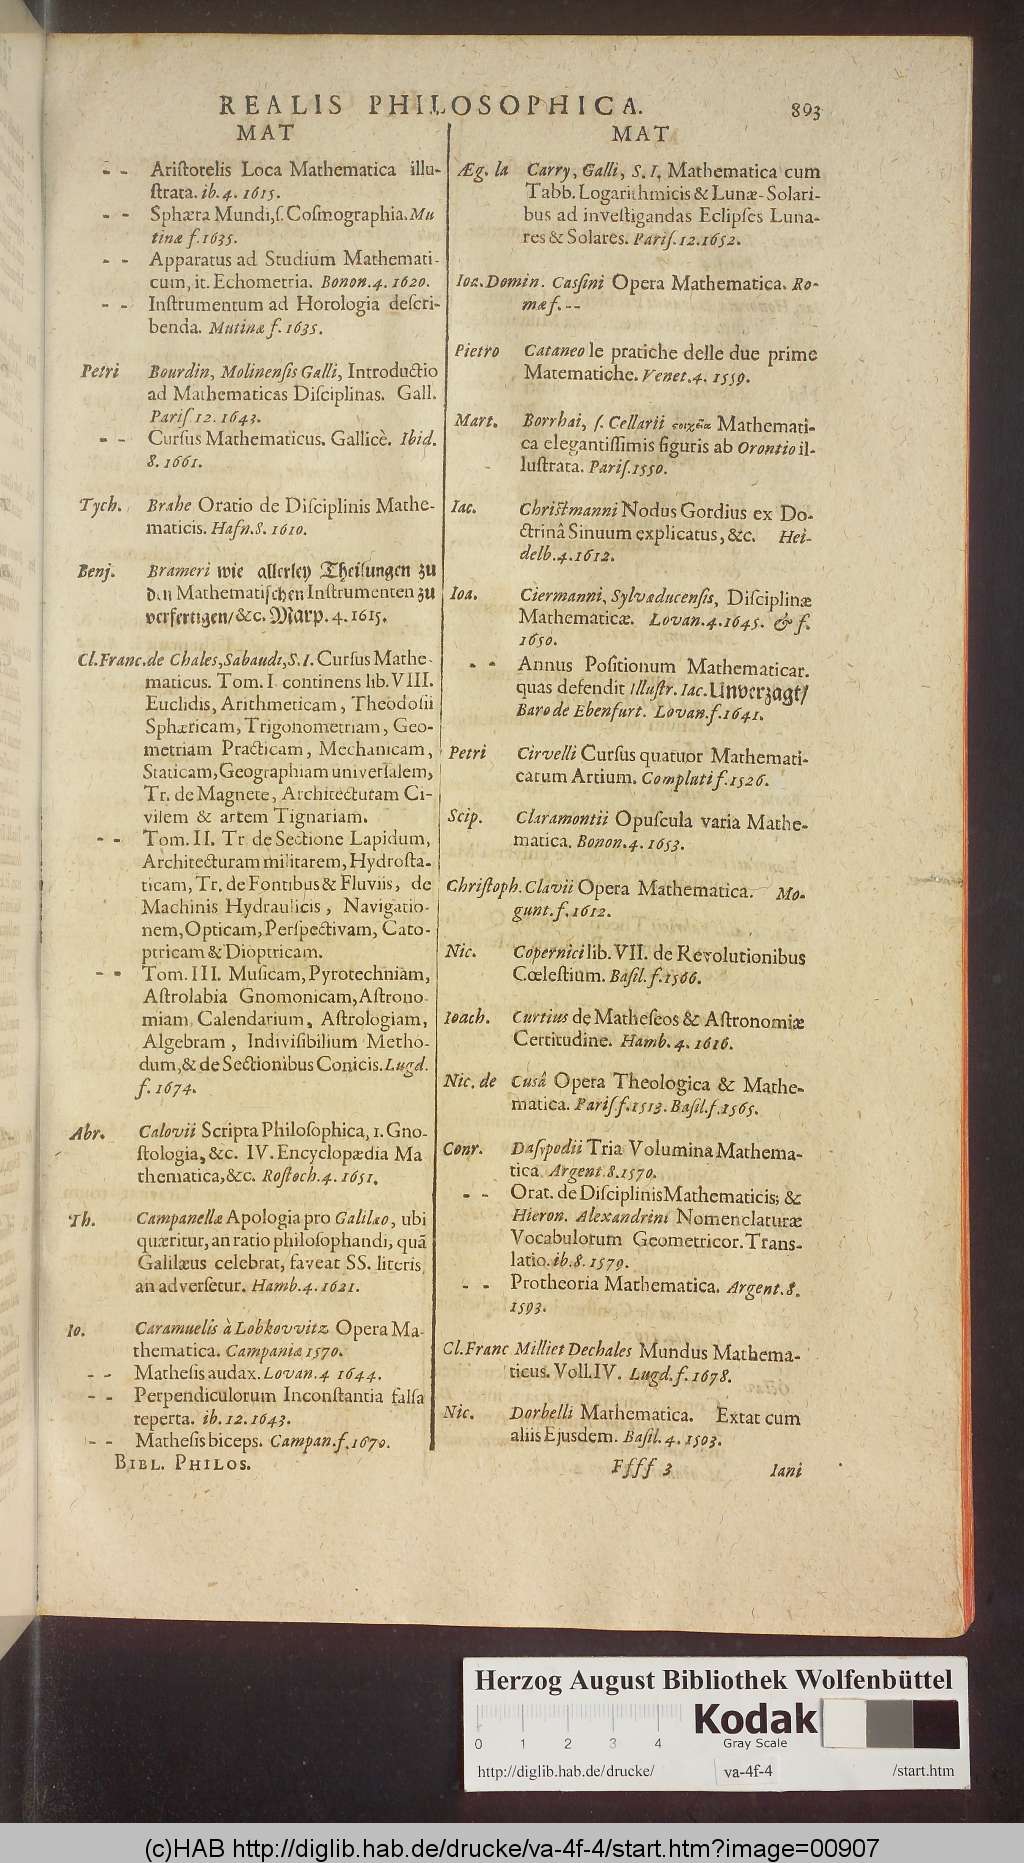 REALIS PHILOSOPHICA. 893
MAT
- - Ariſtotelis Loca Mathematica illu-
ſtrata. ib. 4. 1615.
- - Sphæra Mundi, ſ. Coſmographia. Mu
tinæ f. 1635.
- - Apparatus ad Studium Mathemati-
cum, it. Echometria. Bonon. 4. 1620.
- - Inſtrumentum ad Horologia deſcri-
benda. Mutinæ f. 1635.
Petri Bourdin, Molinenſis Galli, Introductio
ad Mathematicas Diſciplinas. Gall.
Pariſ 12. 1643.
- - Curſus Mathematicus. Gallicè. Ibid.
8. 1661.
Tych. Brahe Oratio de Diſciplinis Mathe-
maticis. Hafn. 8. 1610.
Benj. Brameri wie allerley Theilungen zu
den Mathematiſchen Inſtrumenten zu
verfertigen/ &c. Marp. 4. 1615.
Cl. Franc. de Chales, Sabaudi, S. I. Curſus Mathe-
maticus. Tom. I continens lib. VIII.
Euclidis, Arithmeticam, Theodoſii
Sphæricam, Trigonometriam, Geo-
metriam Practicam, Mechanicam,
Staticam, Geographiam univerſalem,
Tr. de Magnete, Architecturam Ci-
vilem & artem Tignariam.
- - Tom. II. Tr de Sectione Lapidum,
Architecturam militarem, Hydroſta-
ticam, Tr. de Fontibus & Fluviis, de
Machinis Hydraulicis, Navigatio-
nem, Opticam, Perſpectivam, Cato-
ptricam & Dioptricam.
- - Tom. III. Muſicam, Pyrotechniam,
Aſtrolabia Gnomonicam, Aſtrono-
miam, Calendarium, Aſtrologiam,
Algebram, Indiviſibilium Metho-
dum, & de Sectionibus Conicis. Lugd.
f. 1674.
Abr. Calovii Scripta Philoſophica, 1. Gno-
ſtologia, &c. IV. Encyclopædia Ma
thematica, &c. Roſtoch. 4. 1651.
Th. Campanellæ Apologia pro Galilæo, ubi
quæritur, an ratio philoſophandi, quã
Galilæus celebrat, faveat SS. literis
an adverſetur. Hamb. 4. 1621.
Io. Caramuelis à Lobkovvitz Opera Ma-
thematica. Campaniæ 1570.
- - Matheſis audax. Lovan. 4 1644.
- - Perpendiculorum Inconſtantia falſa
reperta. ib. 12. 1643.
- - Matheſis biceps. Campan. f. 1670.
BIBL. PHILOS.
MAT
Æg. la Carry, Galli, S. I. Mathematica cum
Tabb. Logarithmicis & Lunæ-Solari-
bus ad inveſtigandas Eclipſes Luna-
res & Solares. Pariſ. 12. 1652.
Ioa. Domin. Caſſini Opera Mathematica. Ro-
mæ f. --
Pietro Cataneo le pratiche delle due prime
Matematiche. Venet. 4. 1559.
Mart. Borrhai, ſ. Cellarii Mathemati-
ca elegantiſſimis figuris ab Orontio il-
luſtrata. Pariſ. 1550.
Iac. Chriſtmanni Nodus Gordius ex Do-
ctrinâ Sinuum explicatus, &c. Hei-
delb. 4. 1612.
Ioa. Ciermanni, Sylvæducenſis, Diſciplinæ
Mathematicæ. Lovan. 4. 1645. & f.
1650.
- - Annus Poſitionum Mathematicar.
quas defendit Illuſtr. Iac. Unverzagt/
Baro de Ebenfurt. Lovan. f. 1641.
Petri Cirvelli Curſus quatuor Mathemati-
carum Artium. Compluti f. 1526.
Scip. Claramontii Opuſcula varia Mathe-
matica. Bonon. 4. 1653.
Chriſtoph. Clavii Opera Mathematica. Mo-
gunt. f. 1612.
Nic. Copernici lib. VII. de Revolutionibus
Cœleſtium. Baſil. f. 1566.
Ioach. Curtius de Matheſeos & Aſtronomiæ
Certitudine. Hamb. 4. 1616.
Nic. de Cusâ Opera Theologica & Mathe-
matica. Pariſ f. 1513. Baſil. f. 1565.
Conr. Daſypodii Tria Volumina Mathema-
tica. Argent. 8. 1570.
- - Orat. de Diſciplinis Mathematicis; &
Hieron. Alexandrini Nomenclaturæ
Vocabulorum Geometricor. Trans-
latio. ib. 8. 1579.
- - Protheoria Mathematica. Argent. 8.
1593.
Cl. Franc Milliet Dechales Mundus Mathema-
ticus. Voll. IV. Lugd. f. 1678.
Nic. Dorbelli Mathematica. Extat cum
aliis Ejusdem. Baſil. 4. 1503.
Ffff 3 Iani
Herzog August Bibliothek Wolfenbüttel
0 1 2 3 4
Kodak
Gray Scale
http://diglib.hab.de/drucke/ va-4f-4 /start.htm
(c)HAB http://diglib.hab.de/drucke/va-4f-4/start.htm?image=00907